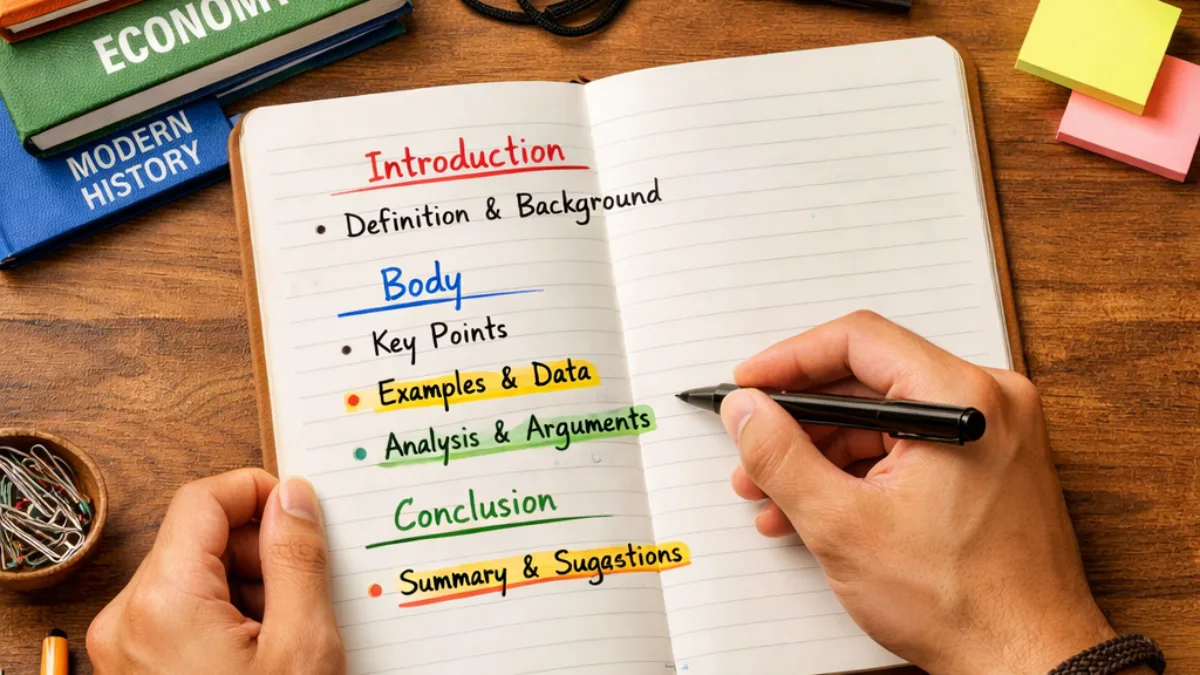 ECONOMY
MODERN
HISTORY
Introduction
• Definition & Background
Body
• Key Points
• Examples & Data
• Analysis & Arguments
Conclusion
• Summary & Sugastions